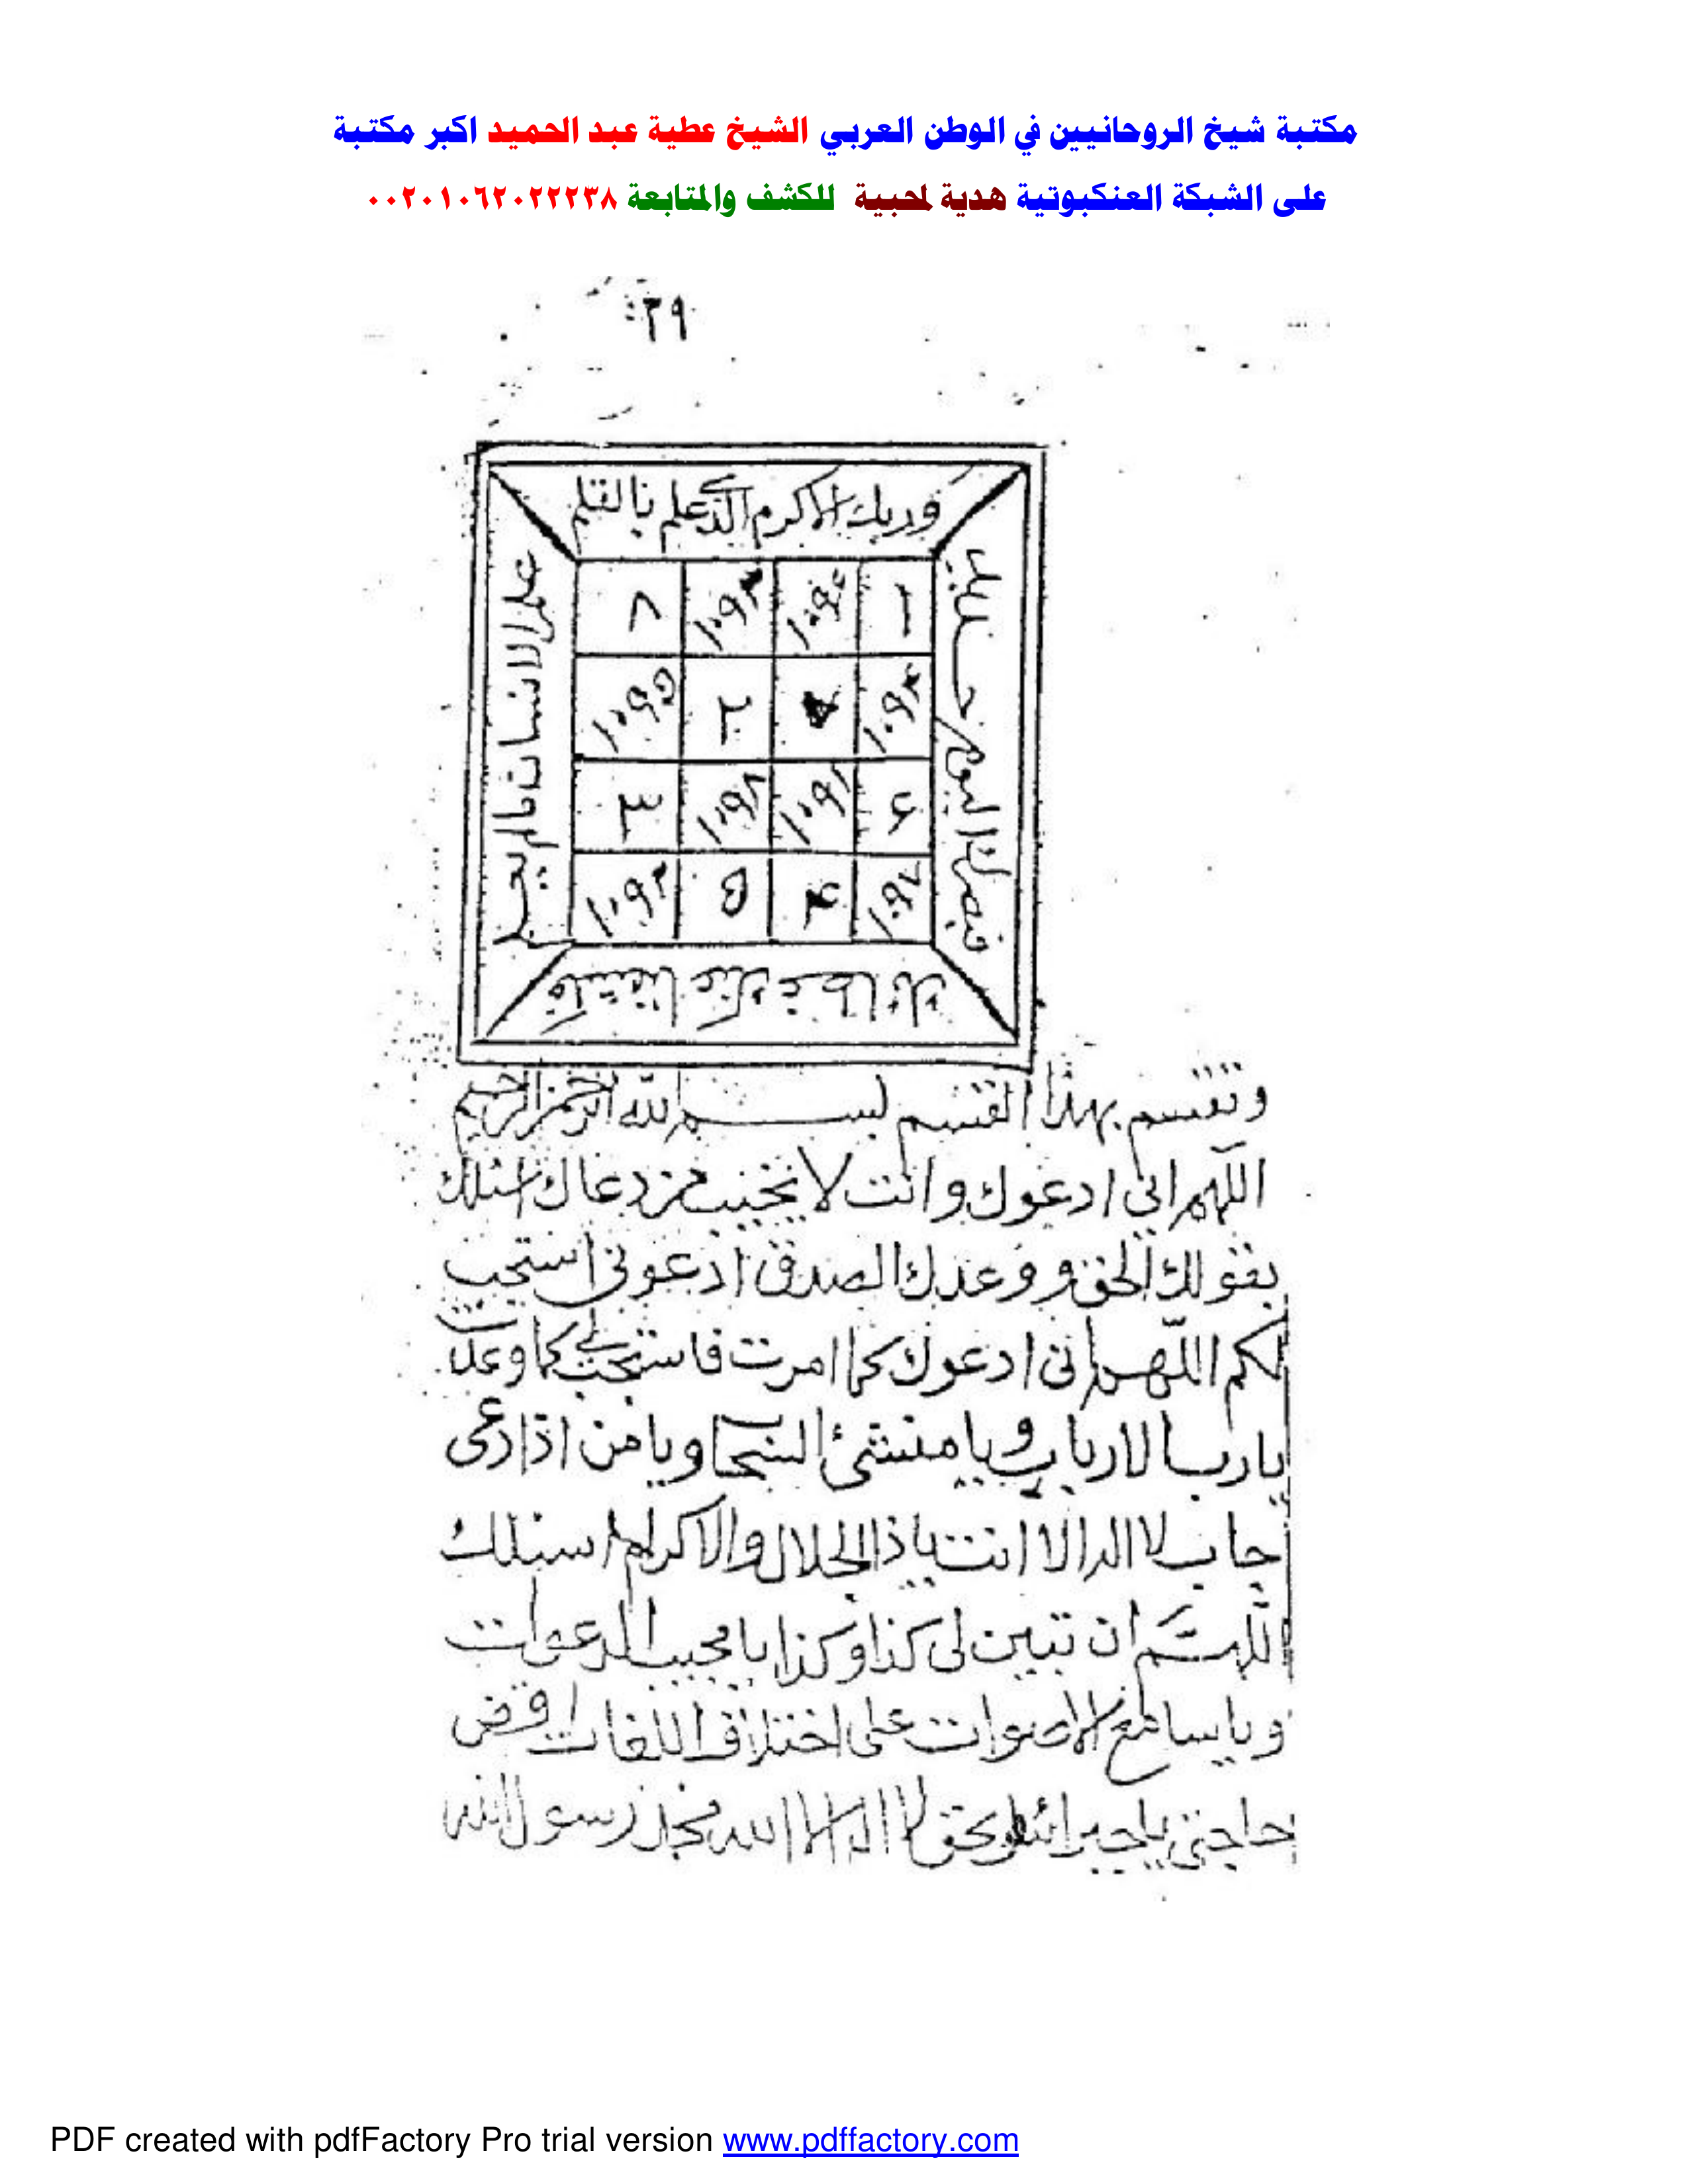 مكتبة شيخ الروحانيين في الوطن العربي الشيخ عطية عبد الحميد اكبر مكتبة
على الشبكة العنكبوتية هدية لمحبية للكشف والمتابعة ٠٠٢٠١٠٦٢٠٢٢٢٣٨
٢٩
وربك الاكرم الذي علم بالقلم
علم الانسان مالم يعلم
فبصرك اليوم حديد
فكشفنا عنك غطاءك
وتقسم بهذا القسم بسم الله الرحمن الرحيم
اللهم اني ادعوك وانت لا تخيب من دعاك اسئلك
بقولك الحق ووعدك الصدق ادعوني استجب
لكم اللهم اني ادعوك كما امرت فاستجب لي كما وعدت
يارب الارباب ويا منشئ السحاب ويا من اذا دعى
جاب لا اله الا انت ياذا الجلال والاكرام اسئلك
اللهم ان تبين لى كذا وكذا يا مجيب الدعوات
ويا سامع الاصوات على اختلاف اللغات اقض
حاجتي يا جبرائيل بحق لا اله الا الله محمد رسول الله
PDF created with pdfFactory Pro trial version www.pdffactory.com